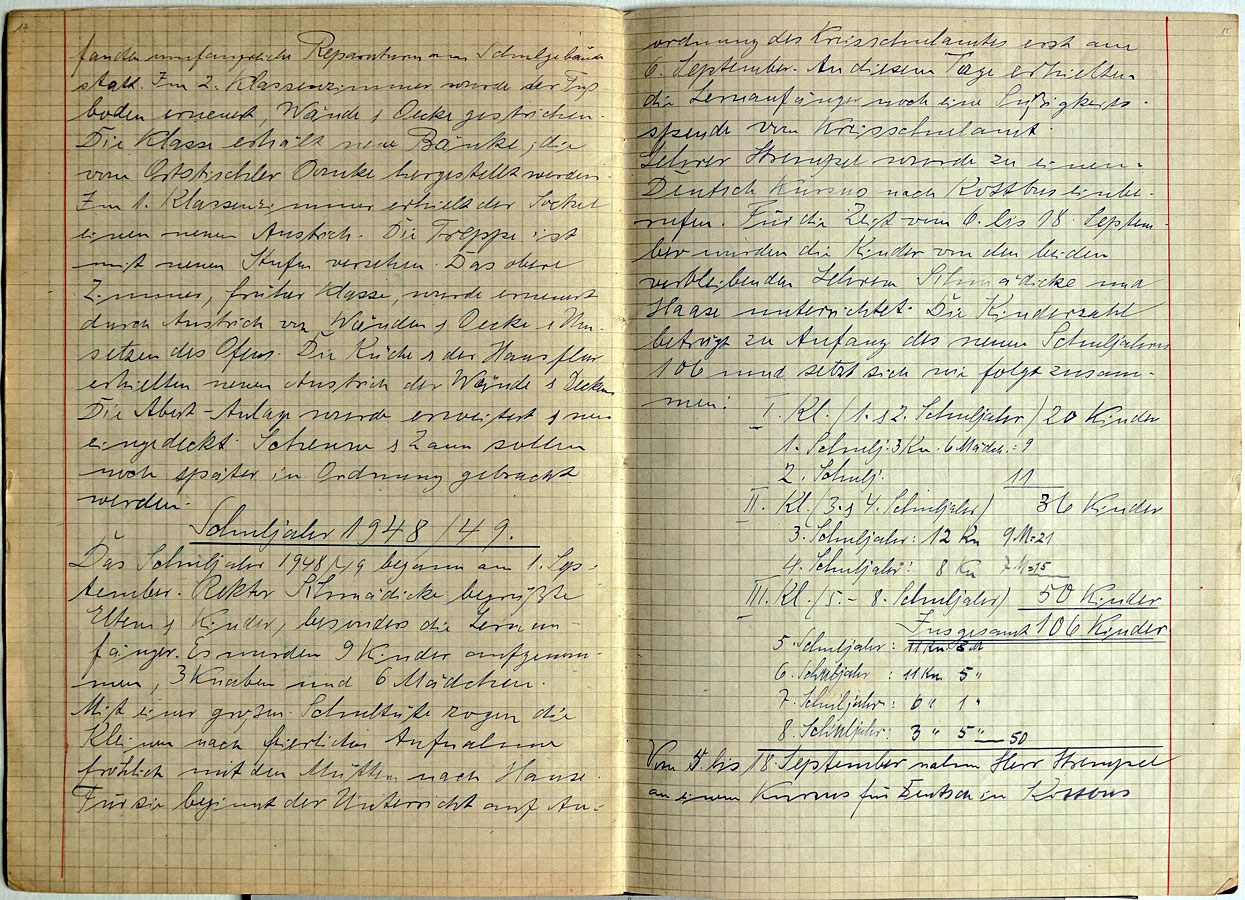 fanden umfangreiche Reparaturen am Schulgebäude
statt. Im 2. Klassenzimmer wurde der Fuß
boden erneuert, Wände & Decke gestrichen.
Die Klasse erhält neue Bänke, die
vom Ortstischler Domke hergestellt werden.
Im 1. Klassenzimmer erhielt der Sockel
einen neuen Anstrich. Die Treppe ist
mit neuen Stufen versehen. Das obere
Zimmer, früher Klasse, wurde erneuert
durch Anstrich von Wänden & Decke & Um-
setzen des Ofens. Die Küche & der Hausflur
erhielten neuen Anstrich der Wände & Decken
Die Abort-Anlage wurde erweitert & neu
eingedeckt. Scheune & Zaun sollen
noch später in Ordnung gebracht
werden.
Schuljahr 1948/49.
Das Schuljahr 1948/49 begann am 1. Sep-
tember. Rektor Schmädicke begrüßte
Eltern & Kinder, besonders die Lernan-
fänger. Es wurden 9 Kinder aufgenom-
men, 3 Knaben und 6 Mädchen.
Mit einer großen Schultüte zogen die
Kleinen nach feierlicher Aufnahme
fröhlich mit den Müttern nach Hause.
Für sie beginnt der Unterricht auf An-
ordnung des Kreisschulamtes erst am
6. September. An diesem Tage erhielten
die Lernanfänger noch eine Süßigkeits-
spende vom Kreisschulamt.
Lehrer Strempel wurde zu einem
Deutsch Kursus nach Kottbus einbe-
rufen. Für die Zeit vom 6. bis 18. Septem-
ber wurden die Kinder von den beiden
verbleibenden Lehrern Schmädicke und
Haase unterrichtet. Die Kinderzahl
beträgt zu Anfang des neuen Schuljahres
106 und setzt sich wie folgt zusam-
men:
I. Kl. (1. & 2. Schuljahr) 20 Kinder
1. Schulj: 3 Kn. 6 Mädch. = 9
2. Schulj. 11
II. Kl. (3. & 4. Schuljahr) 36 Kinder
3. Schuljahr: 12 Kn 9 M = 21
4. Schuljahr: 8 Kn 7 M = 15
III. Kl. (5. - 8. Schuljahr) 50 Kinder
Insgesamt 106 Kinder
5. Schuljahr: 11 Kn 8 M
6. Schuljahr: 11 Kn 5 "
7. Schuljahr: 6 " 1 "
8. Schuljahr: 3 " 5 " 50
Vom 5. bis 18. September nahm Herr Strempel
an einem Kursus für Deutsch in Kottbus